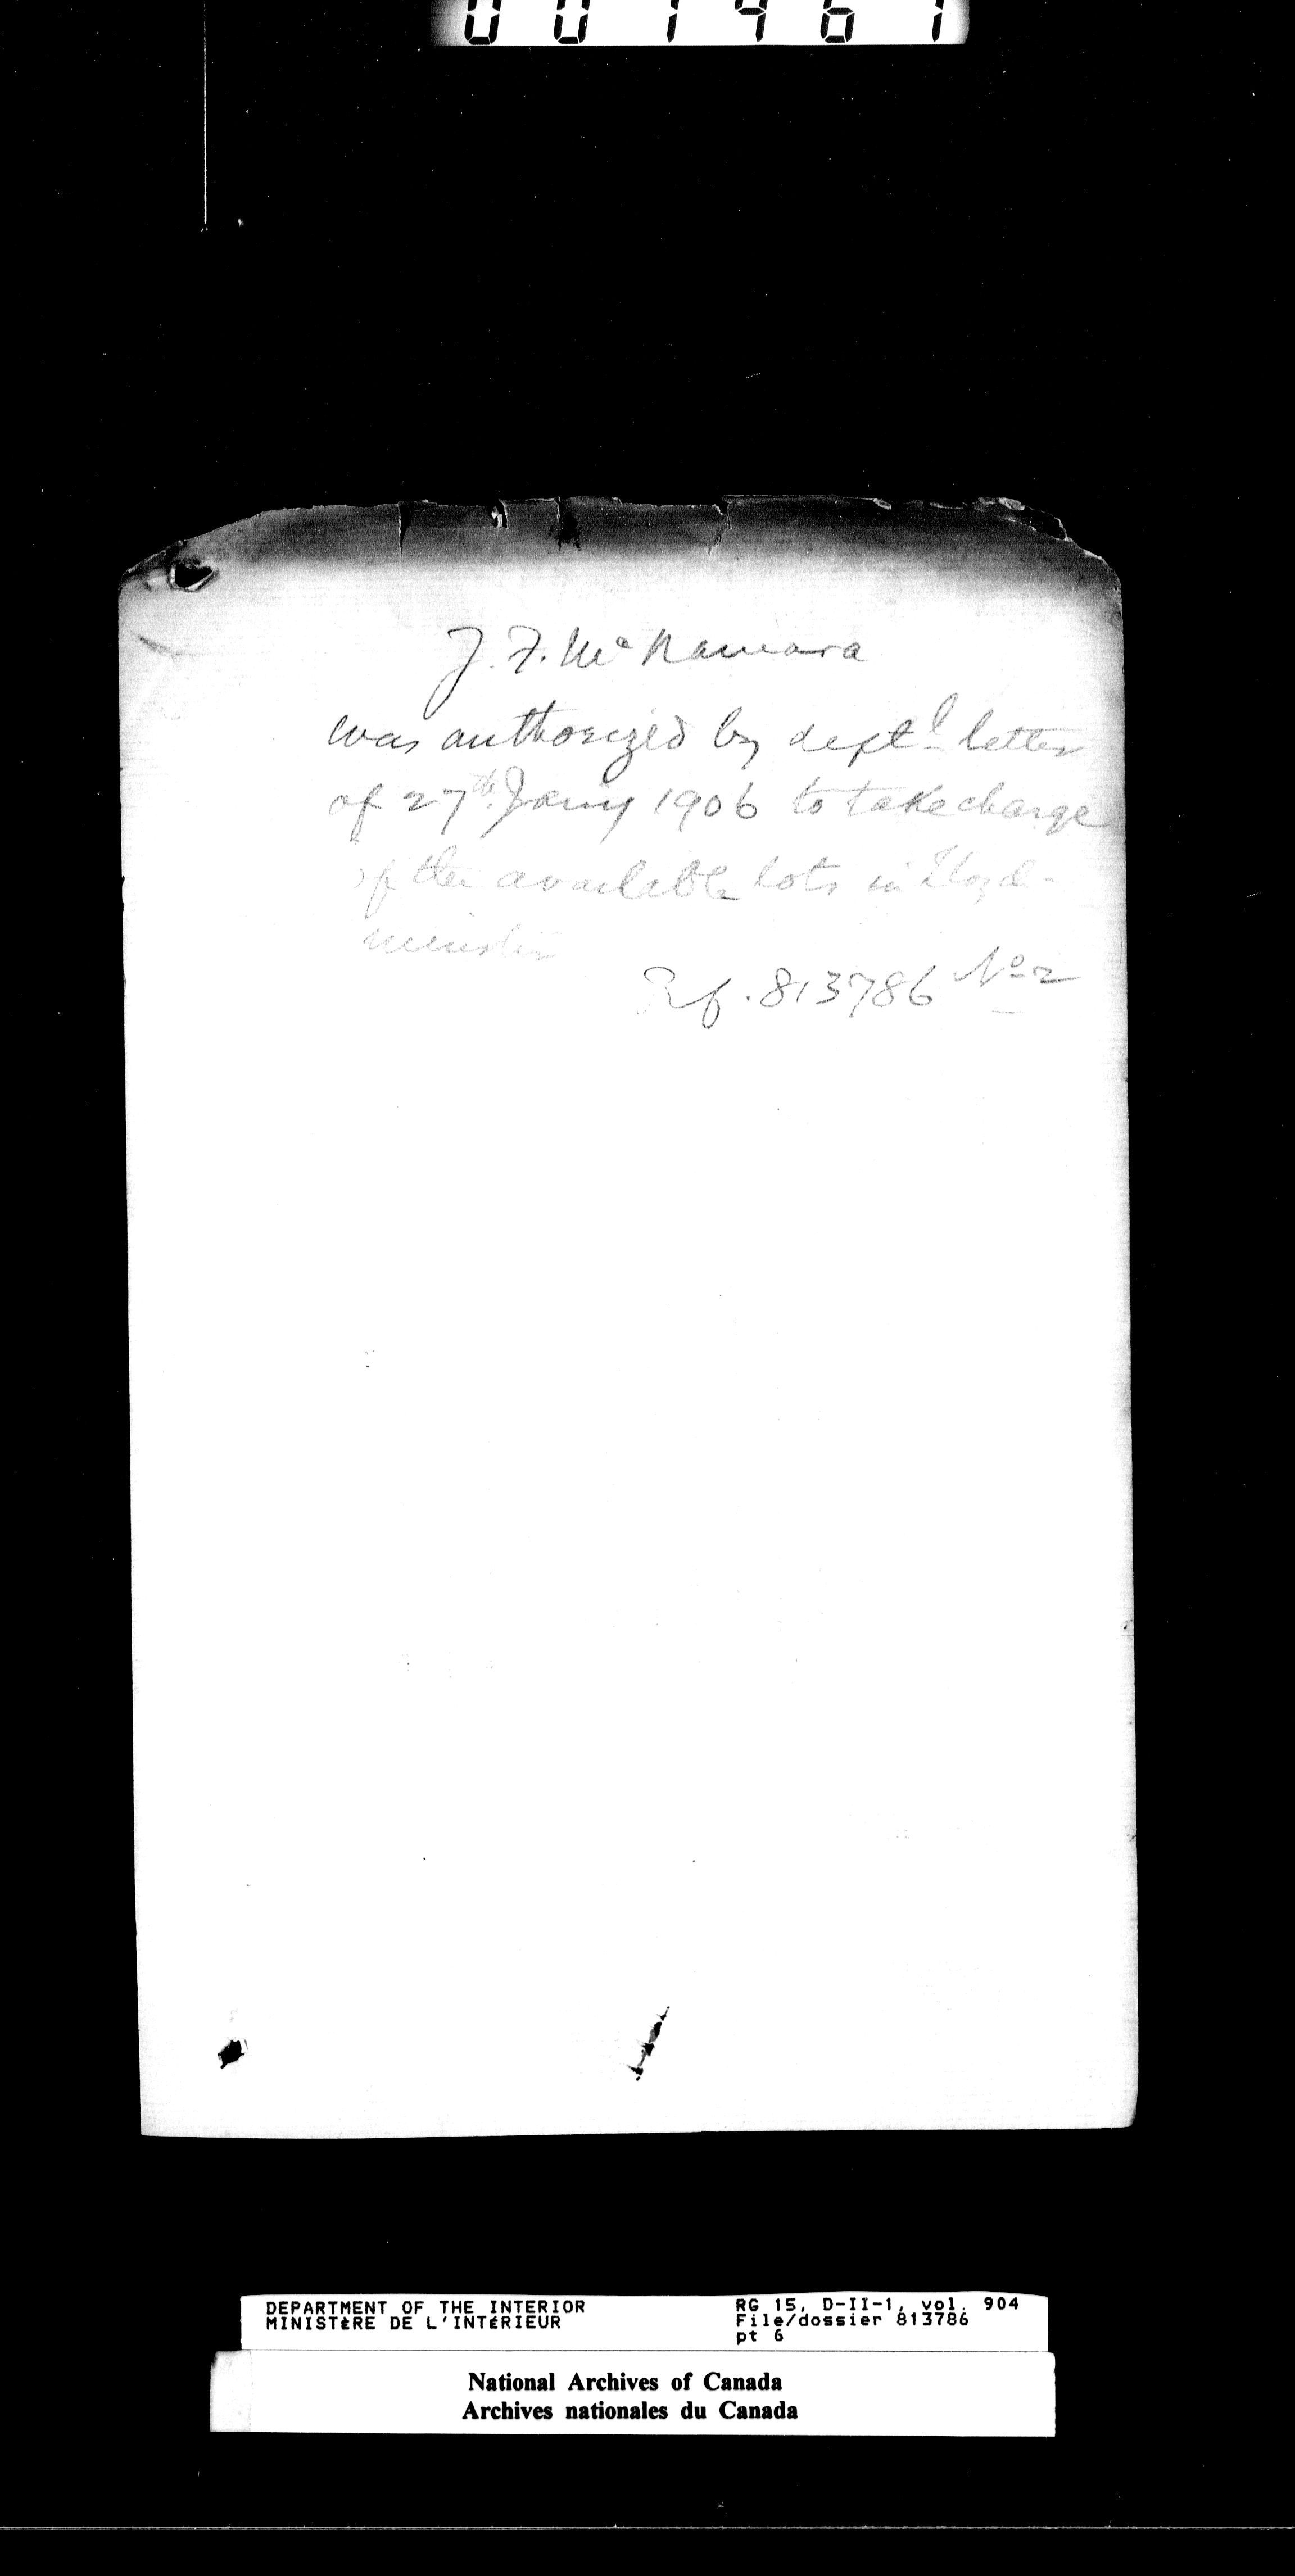 001461
J. F. McNamara
was authorized by deptl letter
of 27th Jany 1906 to take charge
of the available lots in Lloyd-
minster
Rf. 813786 No 2
DEPARTMENT OF THE INTERIOR
MINISTÈRE DE L'INTÉRIEUR
RG 15, D-II-1, vol. 904
File/dossier 813786
pt 6
National Archives of Canada
Archives nationales du Canada